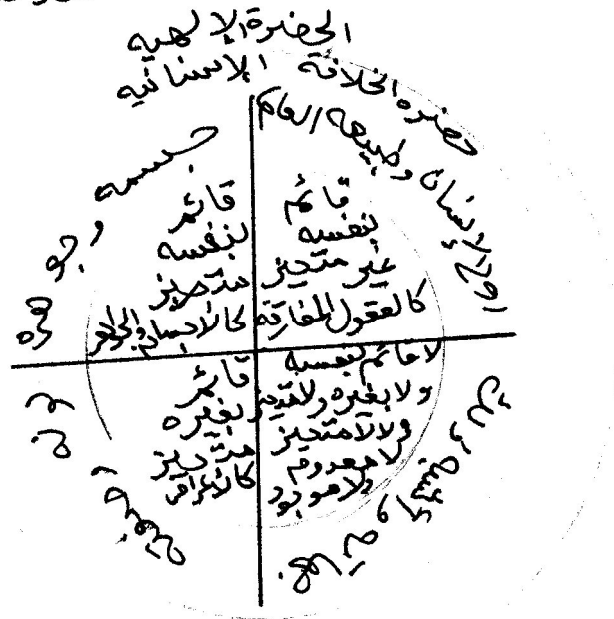 الحضرة الإلهيه
حضرة الخلافة الإنسانيه
روح الإنسان وطبيعه العام
جسمه وجوهره
قائم
بنفسه
غير متحيز
كالعقول المفارقة
قائم
بنفسه
متحيز
كالأجسام والجواهر
لا قائم بنفسه
ولا بغيره ولا متحيز
ولا لا متحيز
لا معدوم
ولا موجود
قائم
بغيره
متحيز
كالأعراض